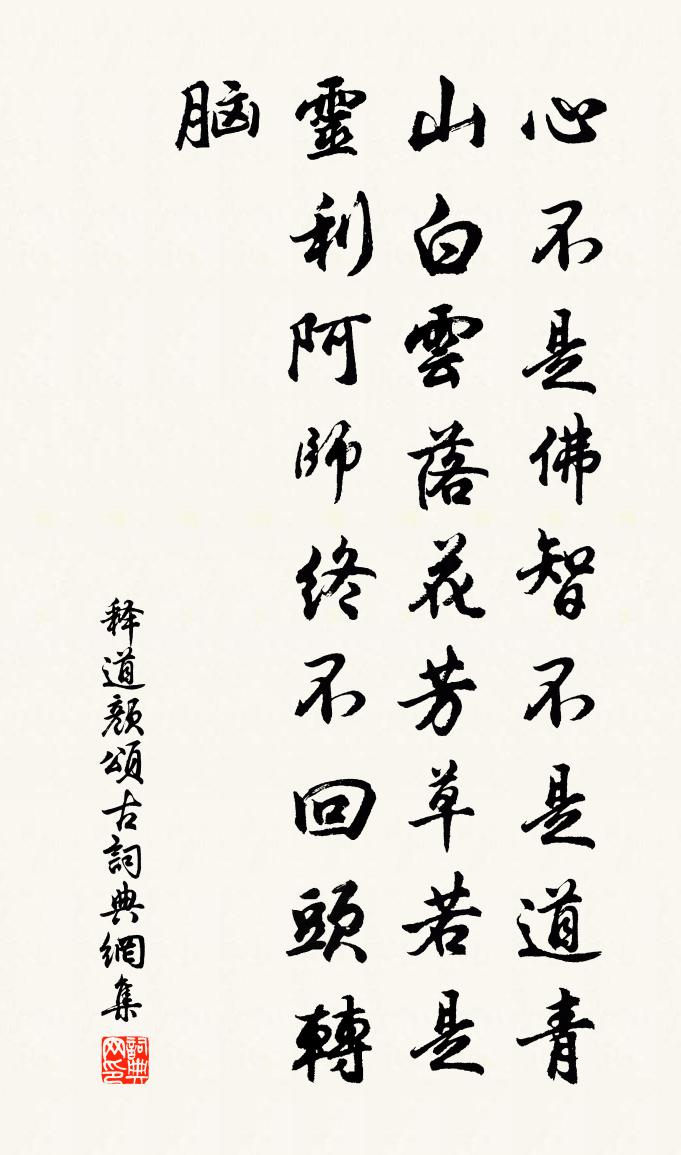 心不是佛智不是道青
山白雲落花芳草若是
靈利阿師終不回頭轉
脑
释道顏頌古詞典網集
詞典网印